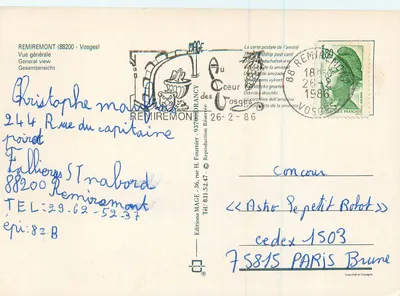 REMIREMONT (88200 - Vosges)
Vue générale
General view
Gesamtansicht
MAGE
la carte postale de l'amitié
Au
Cœur
des
Vosges
REMIREMONT
26-2-86
88 REMIREMONT
18
26-2
1986
VOSGES
Christophe
244 Rue du capitaine
poirot
Fallières ST nabord
88200 Remiremont
TEL: 29-62-52-37
épi: 82 B
Editions MAGE - 36, rue H. Fournier - 93700 DRANCY
Tél.: 831.52.47 - © Reproduction Réservée
Concour
« Asho le petit Robot »
cedex 1503
75815 PARIS Brune
Imprimé en Espagne